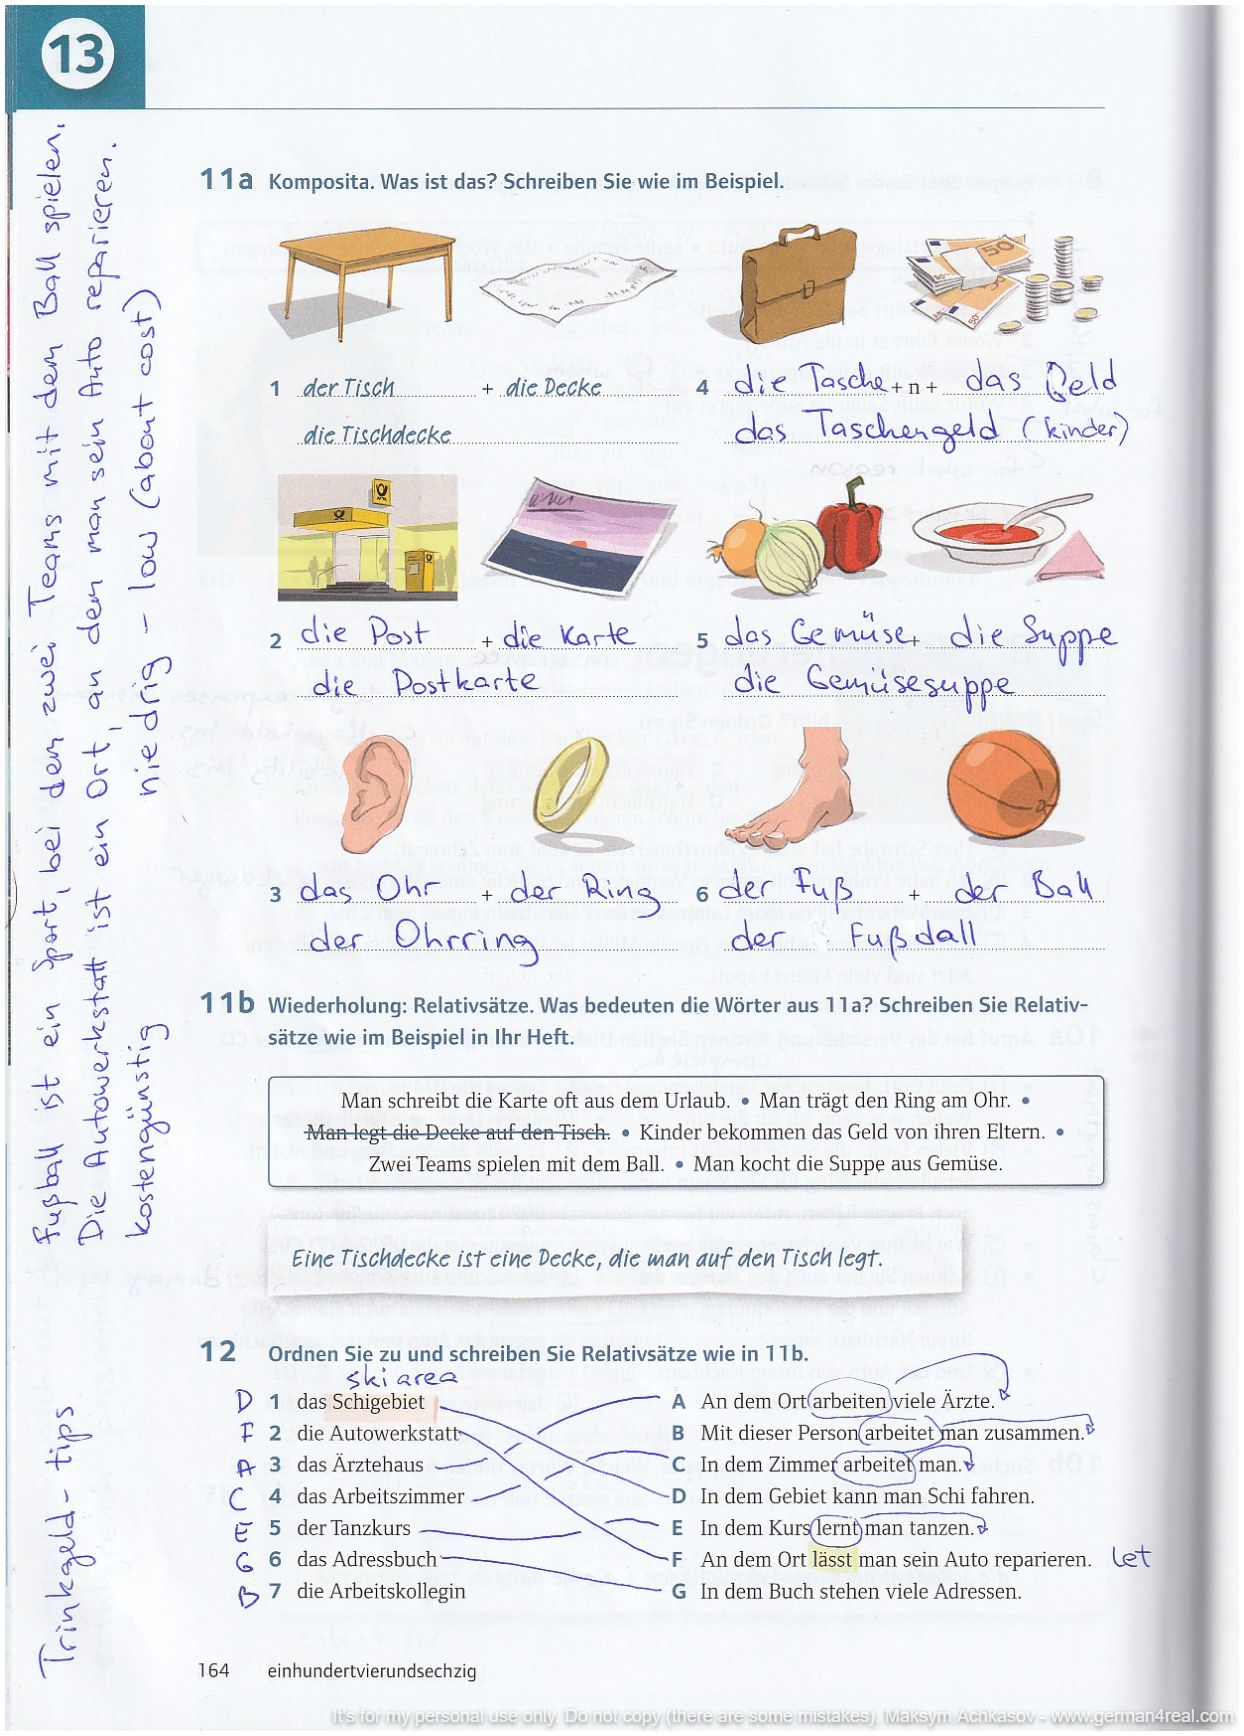 13
11a Komposita. Was ist das? Schreiben Sie wie im Beispiel.
1 der Tisch + die Decke
die Tischdecke
4 die Tasche + n + das Geld
das Taschengeld (kinder)
2 die Post + die Karte
die Postkarte
5 das Gemüse + die Suppe
die Gemüsesuppe
3 das Ohr + der Ring
der Ohrring
6 der Fuß + der Ball
der Fußball
11b Wiederholung: Relativsätze. Was bedeuten die Wörter aus 11a? Schreiben Sie Relativ-
sätze wie im Beispiel in Ihr Heft.
Man schreibt die Karte oft aus dem Urlaub. • Man trägt den Ring am Ohr. •
Man legt die Decke auf den Tisch. • Kinder bekommen das Geld von ihren Eltern. •
Zwei Teams spielen mit dem Ball. • Man kocht die Suppe aus Gemüse.
Eine Tischdecke ist eine Decke, die man auf den Tisch legt.
12 Ordnen Sie zu und schreiben Sie Relativsätze wie in 11b.
ski area
D 1 das Schigebiet
F 2 die Autowerkstatt
A 3 das Ärztehaus
C 4 das Arbeitszimmer
E 5 der Tanzkurs
G 6 das Adressbuch
B 7 die Arbeitskollegin
A An dem Ort arbeiten viele Ärzte.
B Mit dieser Person arbeitet man zusammen.
C In dem Zimmer arbeitet man.
D In dem Gebiet kann man Schi fahren.
E In dem Kurs lernt man tanzen.
F An dem Ort lässt man sein Auto reparieren. let
G In dem Buch stehen viele Adressen.
Fußball ist ein Sport, bei dem zwei Teams mit dem Ball spielen.
Die Autowerkstatt ist ein Ort, an dem man sein Auto reparieren.
kostengünstig niedrig - low (about cost)
Trinkgeld - tips
164 einhundertvierundsechzig
It's for my personal use only. Do not copy (there are some mistakes). Maksym Achkasov - www.german4real.com